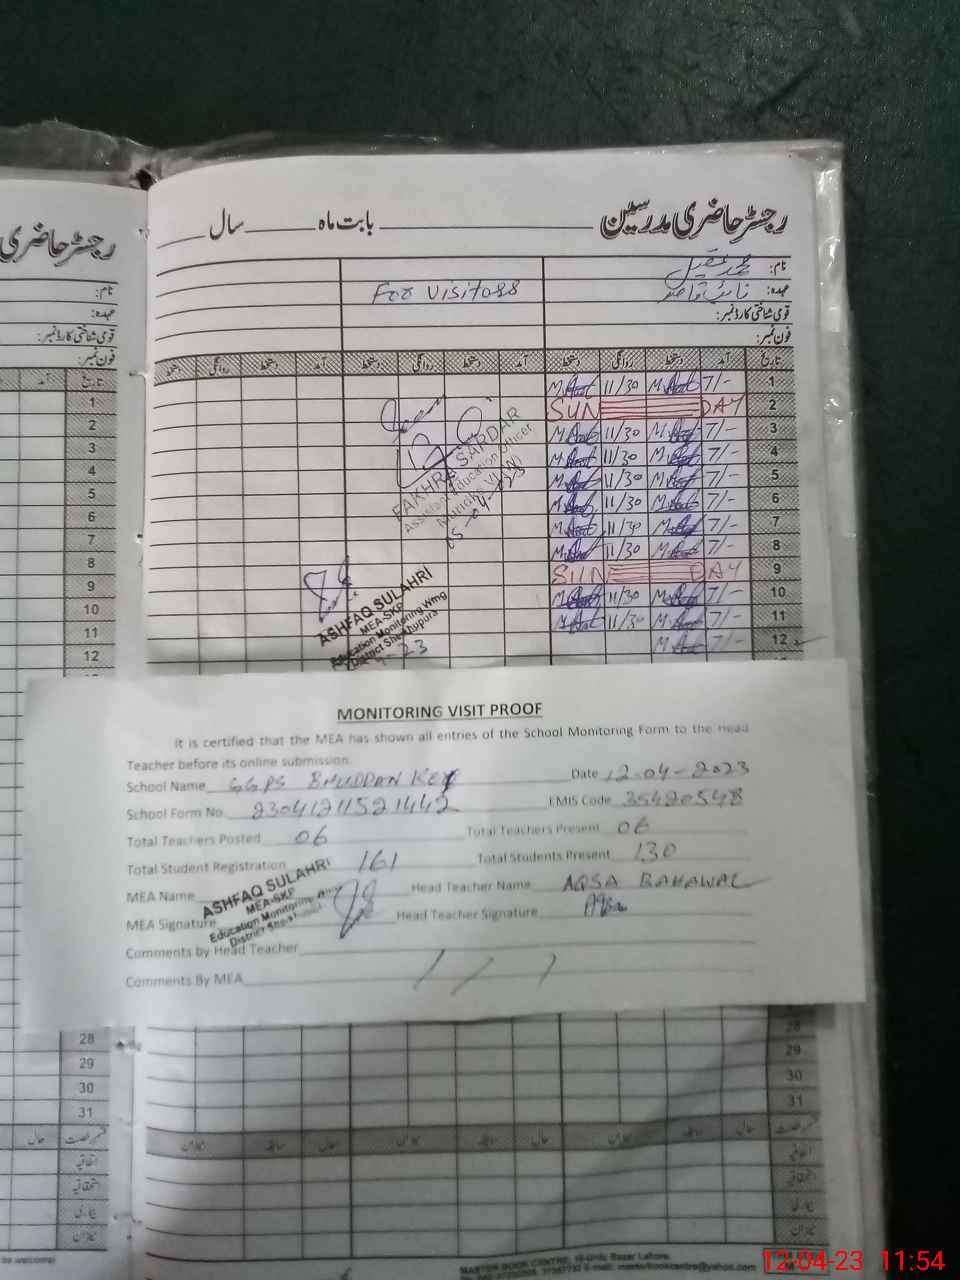 رجسٹر حاضری
نام:
عہدہ:
قومی شناختی کارڈ نمبر:
فون نمبر:
آمد تاریخ
1
2
3
4
5
6
7
8
9
10
11
12
28
29
30
31
حال
اتفاقیہ
استحقاقیہ
رجسٹر حاضری مدرسین بابت ماہ سال
نام: محمد عقیل
عہدہ: نائب قاصد
For Visitors
قومی شناختی کارڈ نمبر:
فون نمبر:
تاریخ آمد دستخط روانگی دستخط آمد دستخط روانگی دستخط
1 7/- 11/30
2 SUNDAY
3 7/- 11/30
4 7/- 11/30
5 7/- 11/30
6 7/- 11/30
7 7/- 11/30
8 7/- 11/30
9 SUNDAY
10 7/- 11/30
11 7/- 11/30
12 7/-
FAKHRA SARDAR
Assistant Education Officer
ASHFAQ SULAHRI
MEA-SKP
Education Monitoring Wing
District Sheikhupura
MONITORING VISIT PROOF
It is certified that the MEA has shown all entries of the School Monitoring Form to the Head
Teacher before its online submission.
School Name GGPS BHUDDAN KEY Date 12-04-2023
School Form No. 23041211521442 EMIS Code 35420548
Total Teachers Posted 06 Total Teachers Present 06
Total Student Registration 161 Total Students Present 130
MEA Name ASHFAQ SULAHRI Head Teacher Name AQSA BAHAWAL
MEA-SKP
Education Monitoring
MEA Signature Head Teacher Signature Aqsa
Comments by Head Teacher
Comments By MEA
28
29
30
31
حال سابقہ میزان حال سابقہ میزان حال سابقہ میزان
اتفاقیہ
استحقاقیہ
بیماری
میزان
MASTER BOOK CENTRE, 10-Urdu Bazar Lahore.
12-04-23 11:54